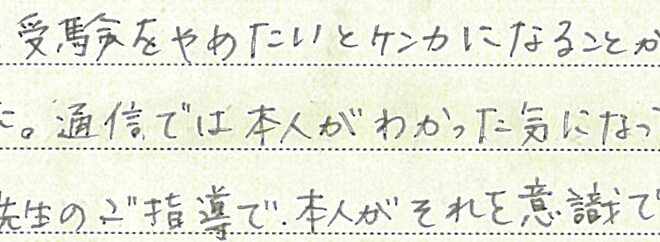 受験をやめたいとケンカになることか
た。通信では本人がわかった気になっ
先生のご指導で、本人がそれを意識で